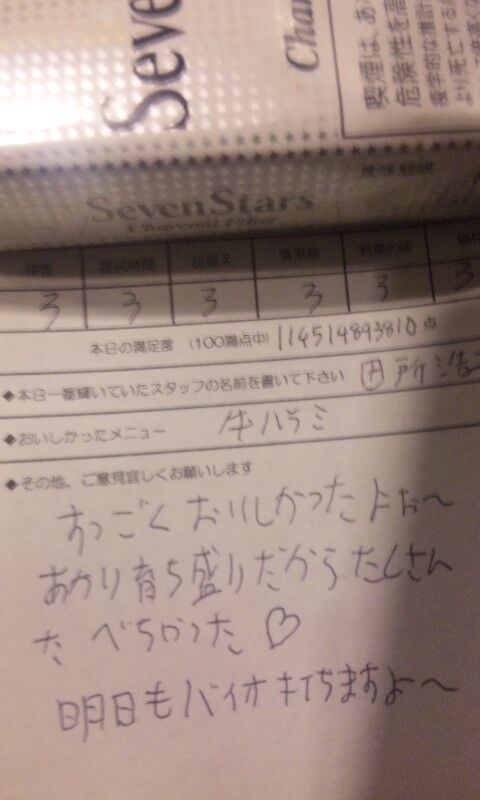 Seve
Char
喫煙は、あ
危険性を高
疫学的な推計
より死亡する
SevenStars
Charcoal Filter
提供時間
清潔感
料理の味
3 3 3 3 3 3
本日の満足度 (100満点中) 114514893810 点
◆本日一番輝いていたスタッフの名前を書いて下さい 田所浩
◆おいしかったメニュー 牛ハラミ
◆その他、ご意見宜しくお願いします
すっごくおいしかったよぉ〜
あかり育ち盛りだからたくさん
たべちゃった♡
明日もバイオキ打ちますよ〜